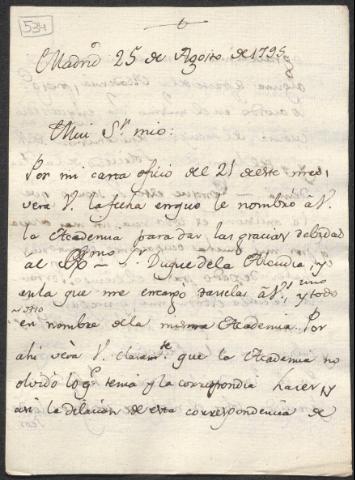 534
Madrid 25 de Agosto de 1795
Mui Sr. mio:
Por mi carta oficio del 21 de este mes,
verá V. la fecha en que le nombró á V.
la Academia para dar las gracias debidas
al Exmo Sr. Duque de la Alcudia, y
en la que me encargó darselas á V. uno y todo
en nombre de la misma Academia. Por
ahi verá V. claramte. que la Academia no
olvidó lo qe. tenia y la correspondia hacer, y
asi la dilacion de esta correspondencia de